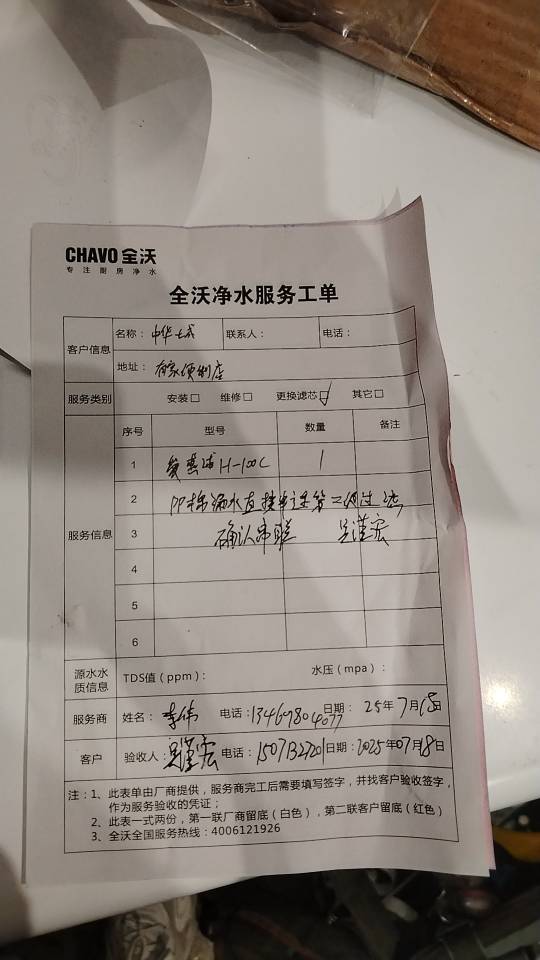 CHAVO 全沃
专注厨房净水
全沃净水服务工单
客户信息 名称： 中华城 联系人： 电话：
地址： 有家便利店
服务类别 安装□ 维修□ 更换滤芯☑ 其它□
服务信息 序号 型号 数量 备注
1 H-100C 1
2 PP棉漏水直接
3 确认串联 吴谨宏
4
5
6
源水水质信息 TDS值（ppm）： 水压（mpa）：
服务商 姓名： 李伟 电话： 日期： 25年7月18日
客户 验收人： 吴谨宏 电话： 15071327201 日期： 2025年07月18日
注：1、此表单由厂商提供，服务商完工后需要填写签字，并找客户验收签字，
作为服务验收的凭证；
2、此表一式两份，第一联厂商留底（白色），第二联客户留底（红色）
3、全沃全国服务热线：4006121926